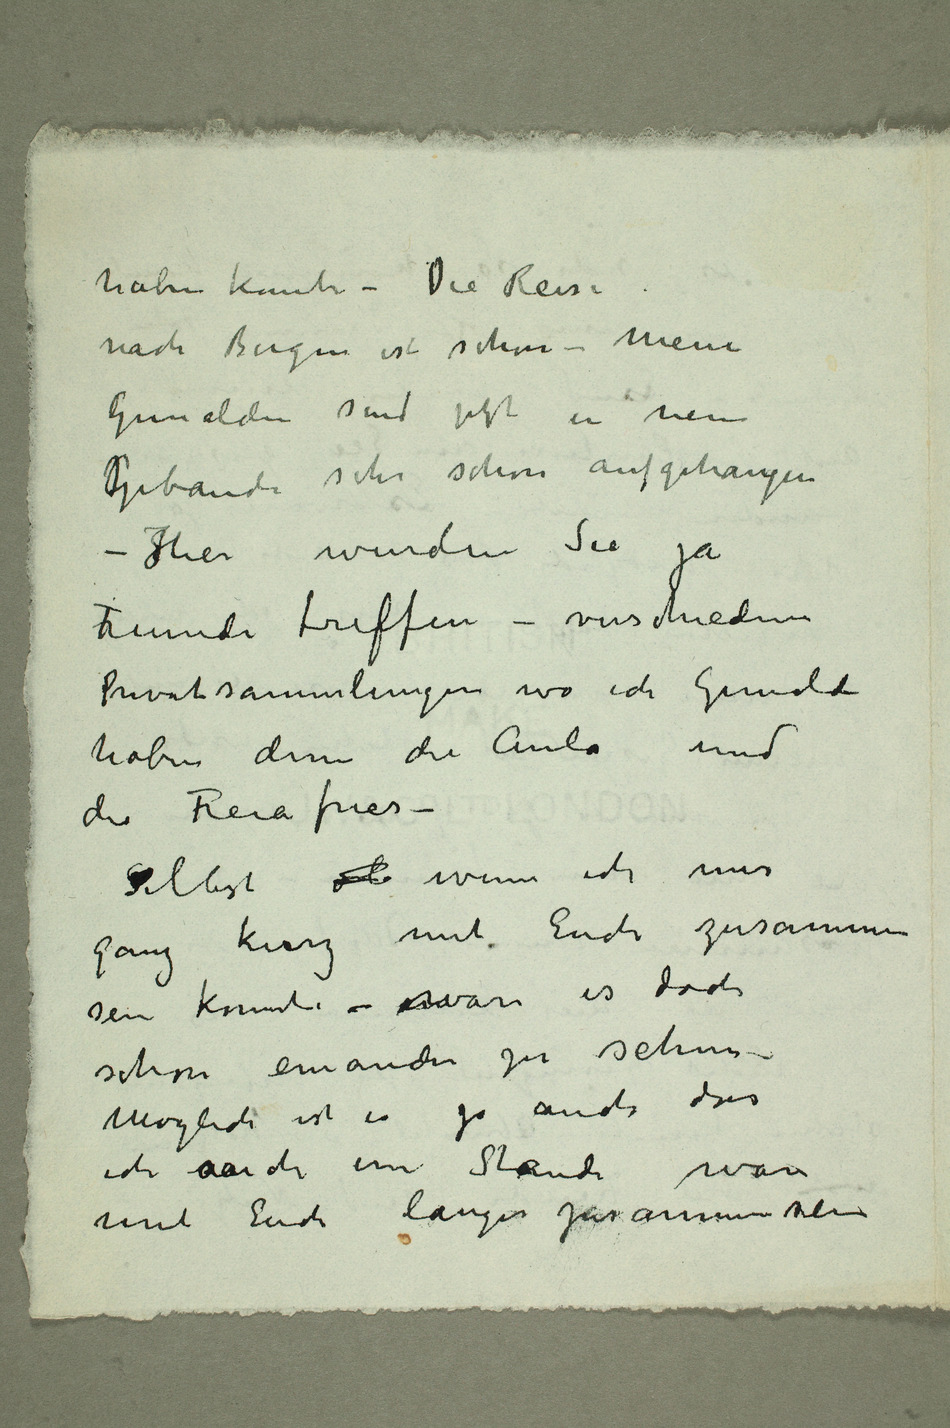 haben konnte – Die Reise
nach Bergen ist schön – Meine
Gemälden sind jetzt in neuem
Gebäude sehr schön aufgehangen
– Hier würden Sie ja
Freunde treffen – verschiedene
Privatsammlungen wo ich Gemälde
haben dann die Aula und
die Freiafries –
Selbst ob wenn ich nur
ganz kurz mit Euch zusammen
sein konnte – wäre es doch
schön einander zu sehen –
Möglich ist es ja auch dass
ich auch im Stande wäre
mit Euch länger zusammen sein